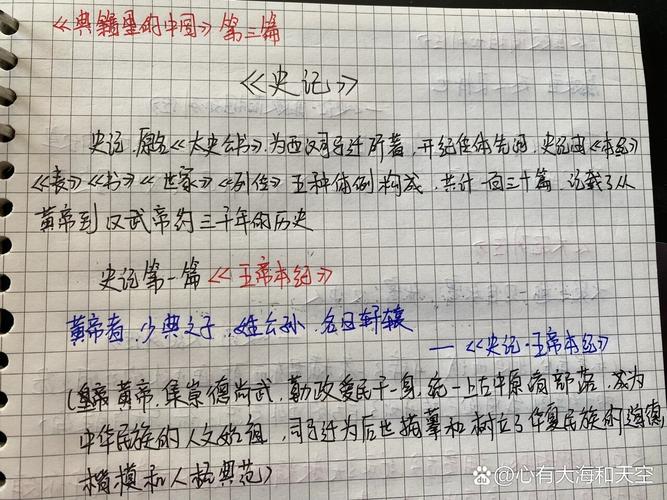 《典籍里的中国》第三篇
《史记》
史记,原名《太史公书》,为西汉司马迁所著,开纪传体先河,史记由《本纪》
《表》《书》《世家》《列传》五种体例构成,共计一百三十篇,记载了从
黄帝到汉武帝约三千年的历史
史记第一篇《五帝本纪》
黄帝者,少典之子,姓公孙,名曰轩辕
—《史记·五帝本纪》
(皇帝黄帝,集崇德尚武,勤政爱民于一身,统一上古中原商部落,成为
中华民族的人文始祖,司马迁为后世描摹和树立了华夏民族的道德
楷模和人格典范)
心有大海和天空